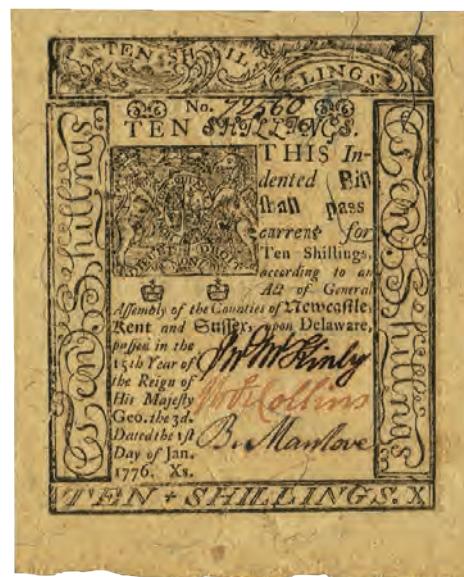 TEN SHILLINGS
No. 72560
TEN SHILLINGS.
THIS In-
dented Bill
ſhall paſs
current for
Ten Shillings,
according to an
Act of General
Aſſembly of the Counties of Newcaſtle,
Kent and Suſſex, upon Delaware,
paſſed in the
15th Year of
the Reign of
His Majeſty
Geo. the 3d.
Dated the 1ſt
Day of Jan.
1776. Xs.
Jno McKinly
Collins
B. Manlove
Ten Shillings
Ten Shillings
TEN + SHILLINGS. X